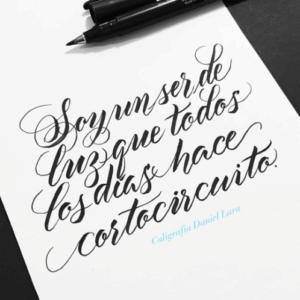 Soy un ser de
luz que todos
los días hace
cortocircuito.
Caligrafía Daniel Lara